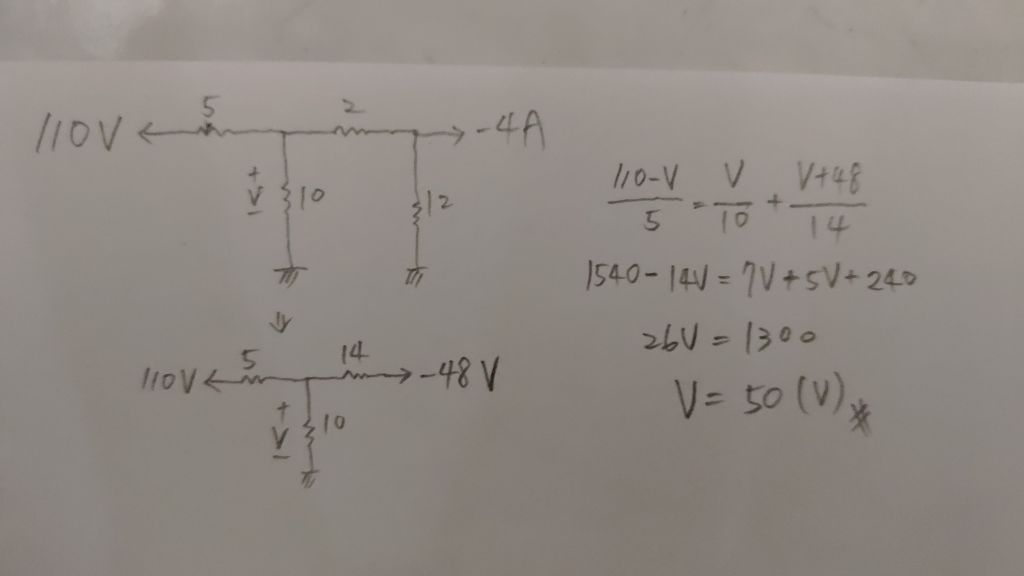 5 2
110V -4A
+
V
-
10 12
5 14
110V -48V
+
V
-
10
110-V/5 = V/10 + V+48/14
1540-14V=7V+5V+240
26V=1300
V=50(V)*